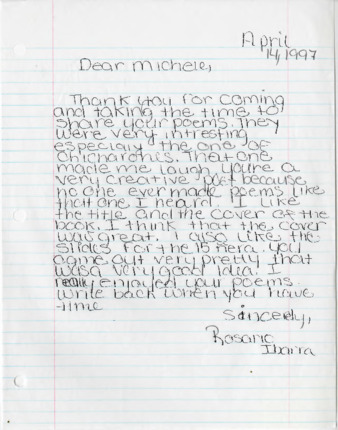 April
14, 1997
Dear Michele,
Thank you for coming
and taking the time to
share your poems. They
were very intresting
especialy the one of
Chicharones. That one
made me laugh you're a
very creative poet because
no one ever made poems like
that one I heard. I like
the title and the cover of the
book. I think that the cover
was great. I also like the
slides for the 15 nera. you
came out very pretty that
was a very good idia. I
really enjoyed your poems
write back when you have
time
Sincerly,
Rosario
Ibarra